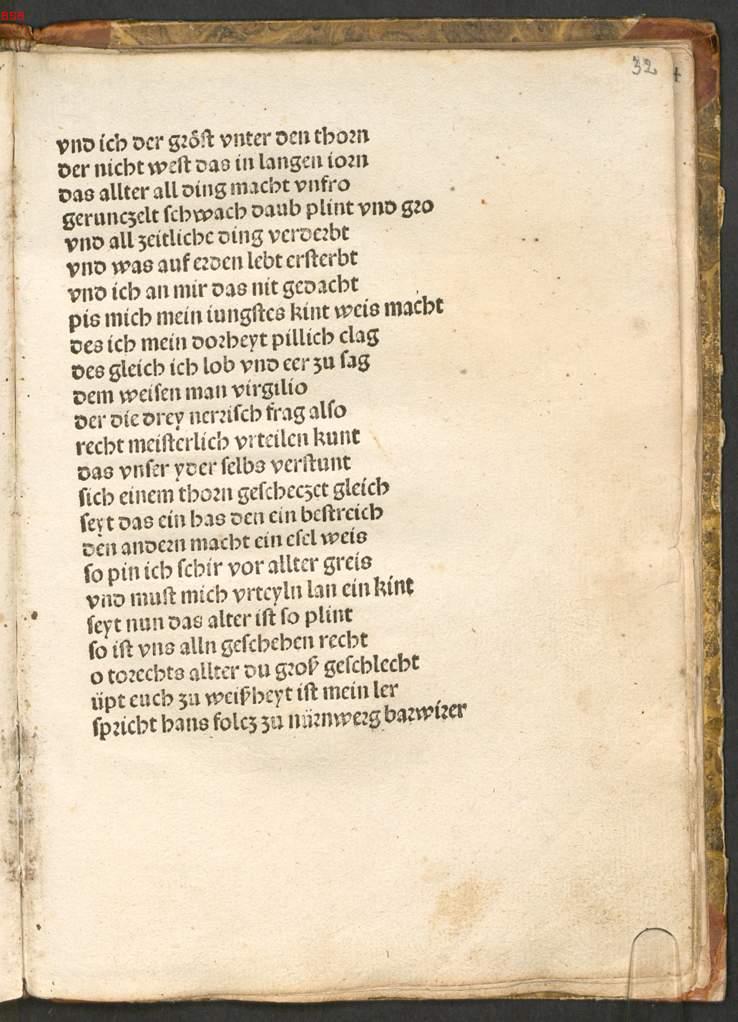 BSB
32
vnd ich der gröſt vnter den thorn
der nicht weſt das in langen iorn
das allter all ding macht vnfro
gerunczelt ſchwach daub plint vnd gro
vnd all zeitliche ding verderbt
vnd was auf erden lebt erſterbt
vnd ich an mir das nit gedacht
pis mich mein iungſtes kint weis macht
des ich mein dorheyt pillich clag
des gleich ich lob vnd eer zu ſag
dem weiſen man virgilio
der die drey nerriſch frag alſo
recht meiſterlich vrteilen kunt
das vnſer yder ſelbs verſtunt
ſich einem thorn geſcheczet gleich
ſeyt das ein has den ein beſtreich
den andern macht ein eſel weis
ſo pin ich ſchir vor allter greis
vnd muſt mich vrteyln lan ein kint
ſeyt nun das alter iſt ſo plint
ſo iſt vns alln geſchehen recht
o torechts allter du groß geſchlecht
üpt euch zu weißheyt iſt mein ler
ſpricht hans folcz zu nürnwerg barwirer